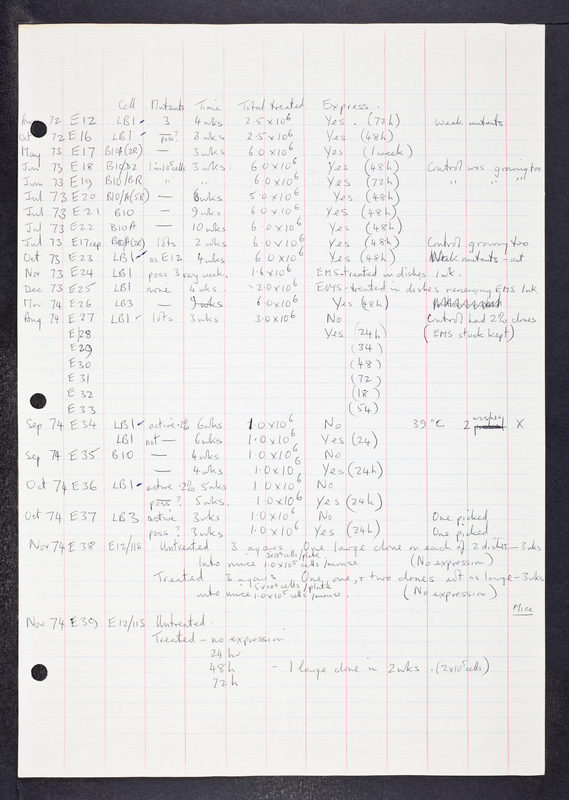 Cell Mutants Time Total treated Express.
Aug 72 E12 LB1 3 4wks 2.5 x 10⁶ Yes. (72h) Weak mutants
Oct 72 E16 LB1 poss? 3wks 2.5 x 10⁶ Yes (48h)
May 73 E17 B10A(2R) — 3wks 6.0 x 10⁶ Yes (1 week)
Jun 73 E18 B10/D2 1 in 10⁵ cells 3wks. 6.0 x 10⁶ Yes (48h) Control was growing too
June 73 E19 B10/BR " " 6.0 x 10⁶ Yes (72h) " " " "
Jul 73 E20 B10/A(5R) — 6wks 5.0 x 10⁶ Yes (48h)
Jul 73 E21 B10 — 9wks 6.0 x 10⁶ Yes (48h)
Jul 73 E22 B10A — 10wks 6.0 x 10⁶ Yes (48h)
Jul 73 E17rep B10A(2R) lots 2wks 6.0 x 10⁶ Yes (48h) Control growing too
Oct 73 E23 LB1 as E12 4wks 6.0 x 10⁶ Yes (48h) Weak mutants - not
Nov 73 E24 LB1 poss 3 very weak. 1.6 x 10⁶ EMS-treated in dishes 1wk.
Dec 73 E25 LB1 none 4wks ~2.0 x 10⁶ EMS-treated in dishes renewing EMS 1wk.
Mar 74 E26 LB3 — 9wks 6.0 x 10⁶ Yes (48h)
Aug 74 E27 LB1 lots 3wks 3.0 x 10⁶ No Control had 2% clones
E28 Yes (24h) (EMS stock kept)
E29 (34)
E30 (48)
E31 (72)
E32 (18)
E33 (54)
Sep 74 E34 LB1 active .2% 6wks 1.0 x 10⁶ No 39 °C 2 washes X
LB1 not — 6wks 1.0 x 10⁶ Yes (24)
Sep 74 E35 B10 — 4wks 1.0 x 10⁶ No
— 4wks 1.0 x 10⁶ Yes (24h)
Oct 74 E36 LB1 active .2% 5wks 1.0 x 10⁶ No
poss? 5wks. 1.0 x 10⁶ Yes (24h)
Oct 74 E37 LB3 active 3wks 1.0 x 10⁶ No One picked
poss? 3wks 1.0 x 10⁶ Yes (24h) One picked
Nov 74 E38 E12/11S Untreated 3 agars One large clone on each of 2 dishes — 3wks
5x10⁴ cells/plate
Into mice 1.0 x 10⁵ cells/mouse (No expression)
Treated 3 agars One, one, & two clones not as large — 3wks
5x10⁴ cells/plate
into mice 1.0 x 10⁵ cells/mouse. (No expression)
Mice
Nov 74 E39 E12/11S Untreated.
Treated — no expression
24 hr
48h - 1 large clone in 2wks. (2x10⁵ cells)
72h